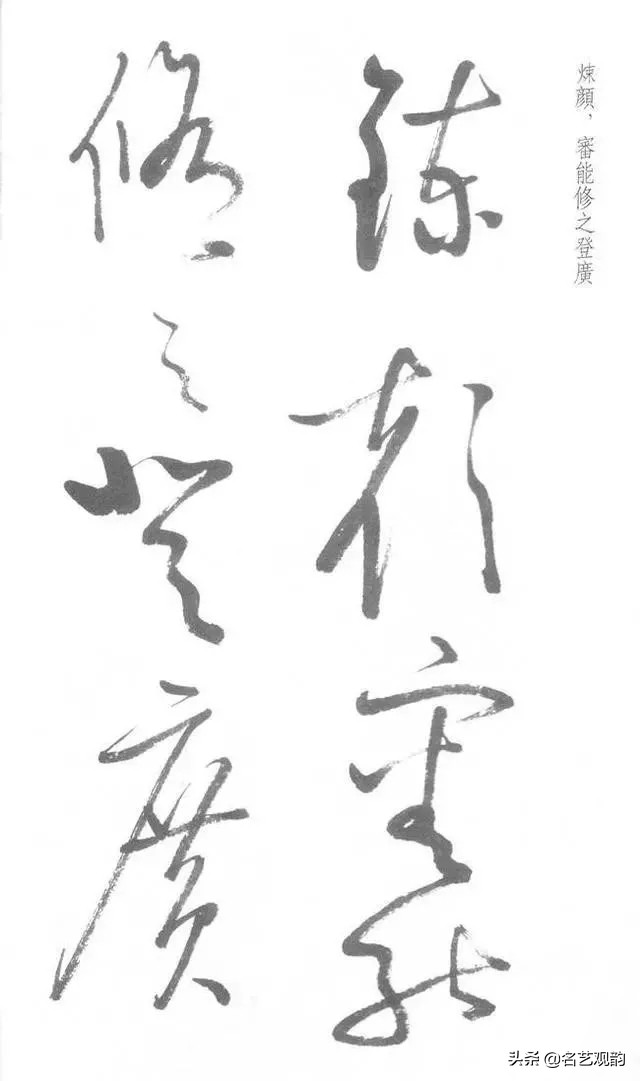 煉顔，審能修之登廣
鍊顔審能
脩之登廣
头条 @名艺观韵